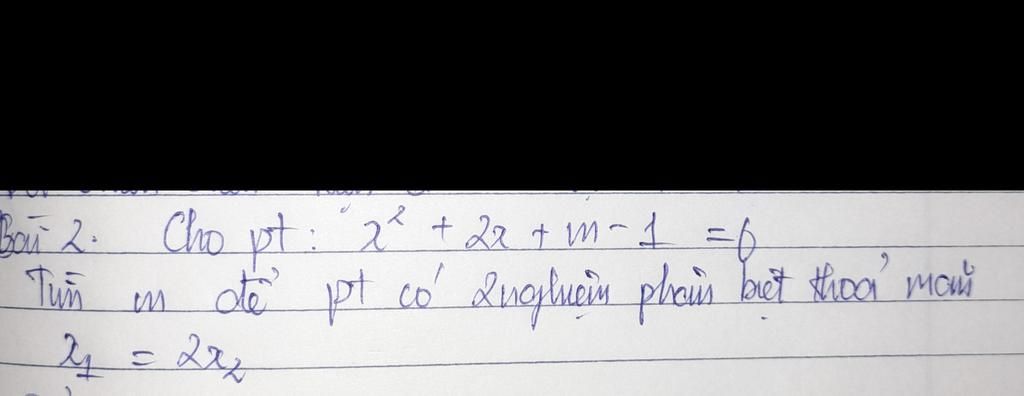 Bài 2. Cho pt: x² + 2x + m - 1 = 0
Tìm m để pt có 2 nghiệm phân biệt thoả mãn
x₁ = 2x₂